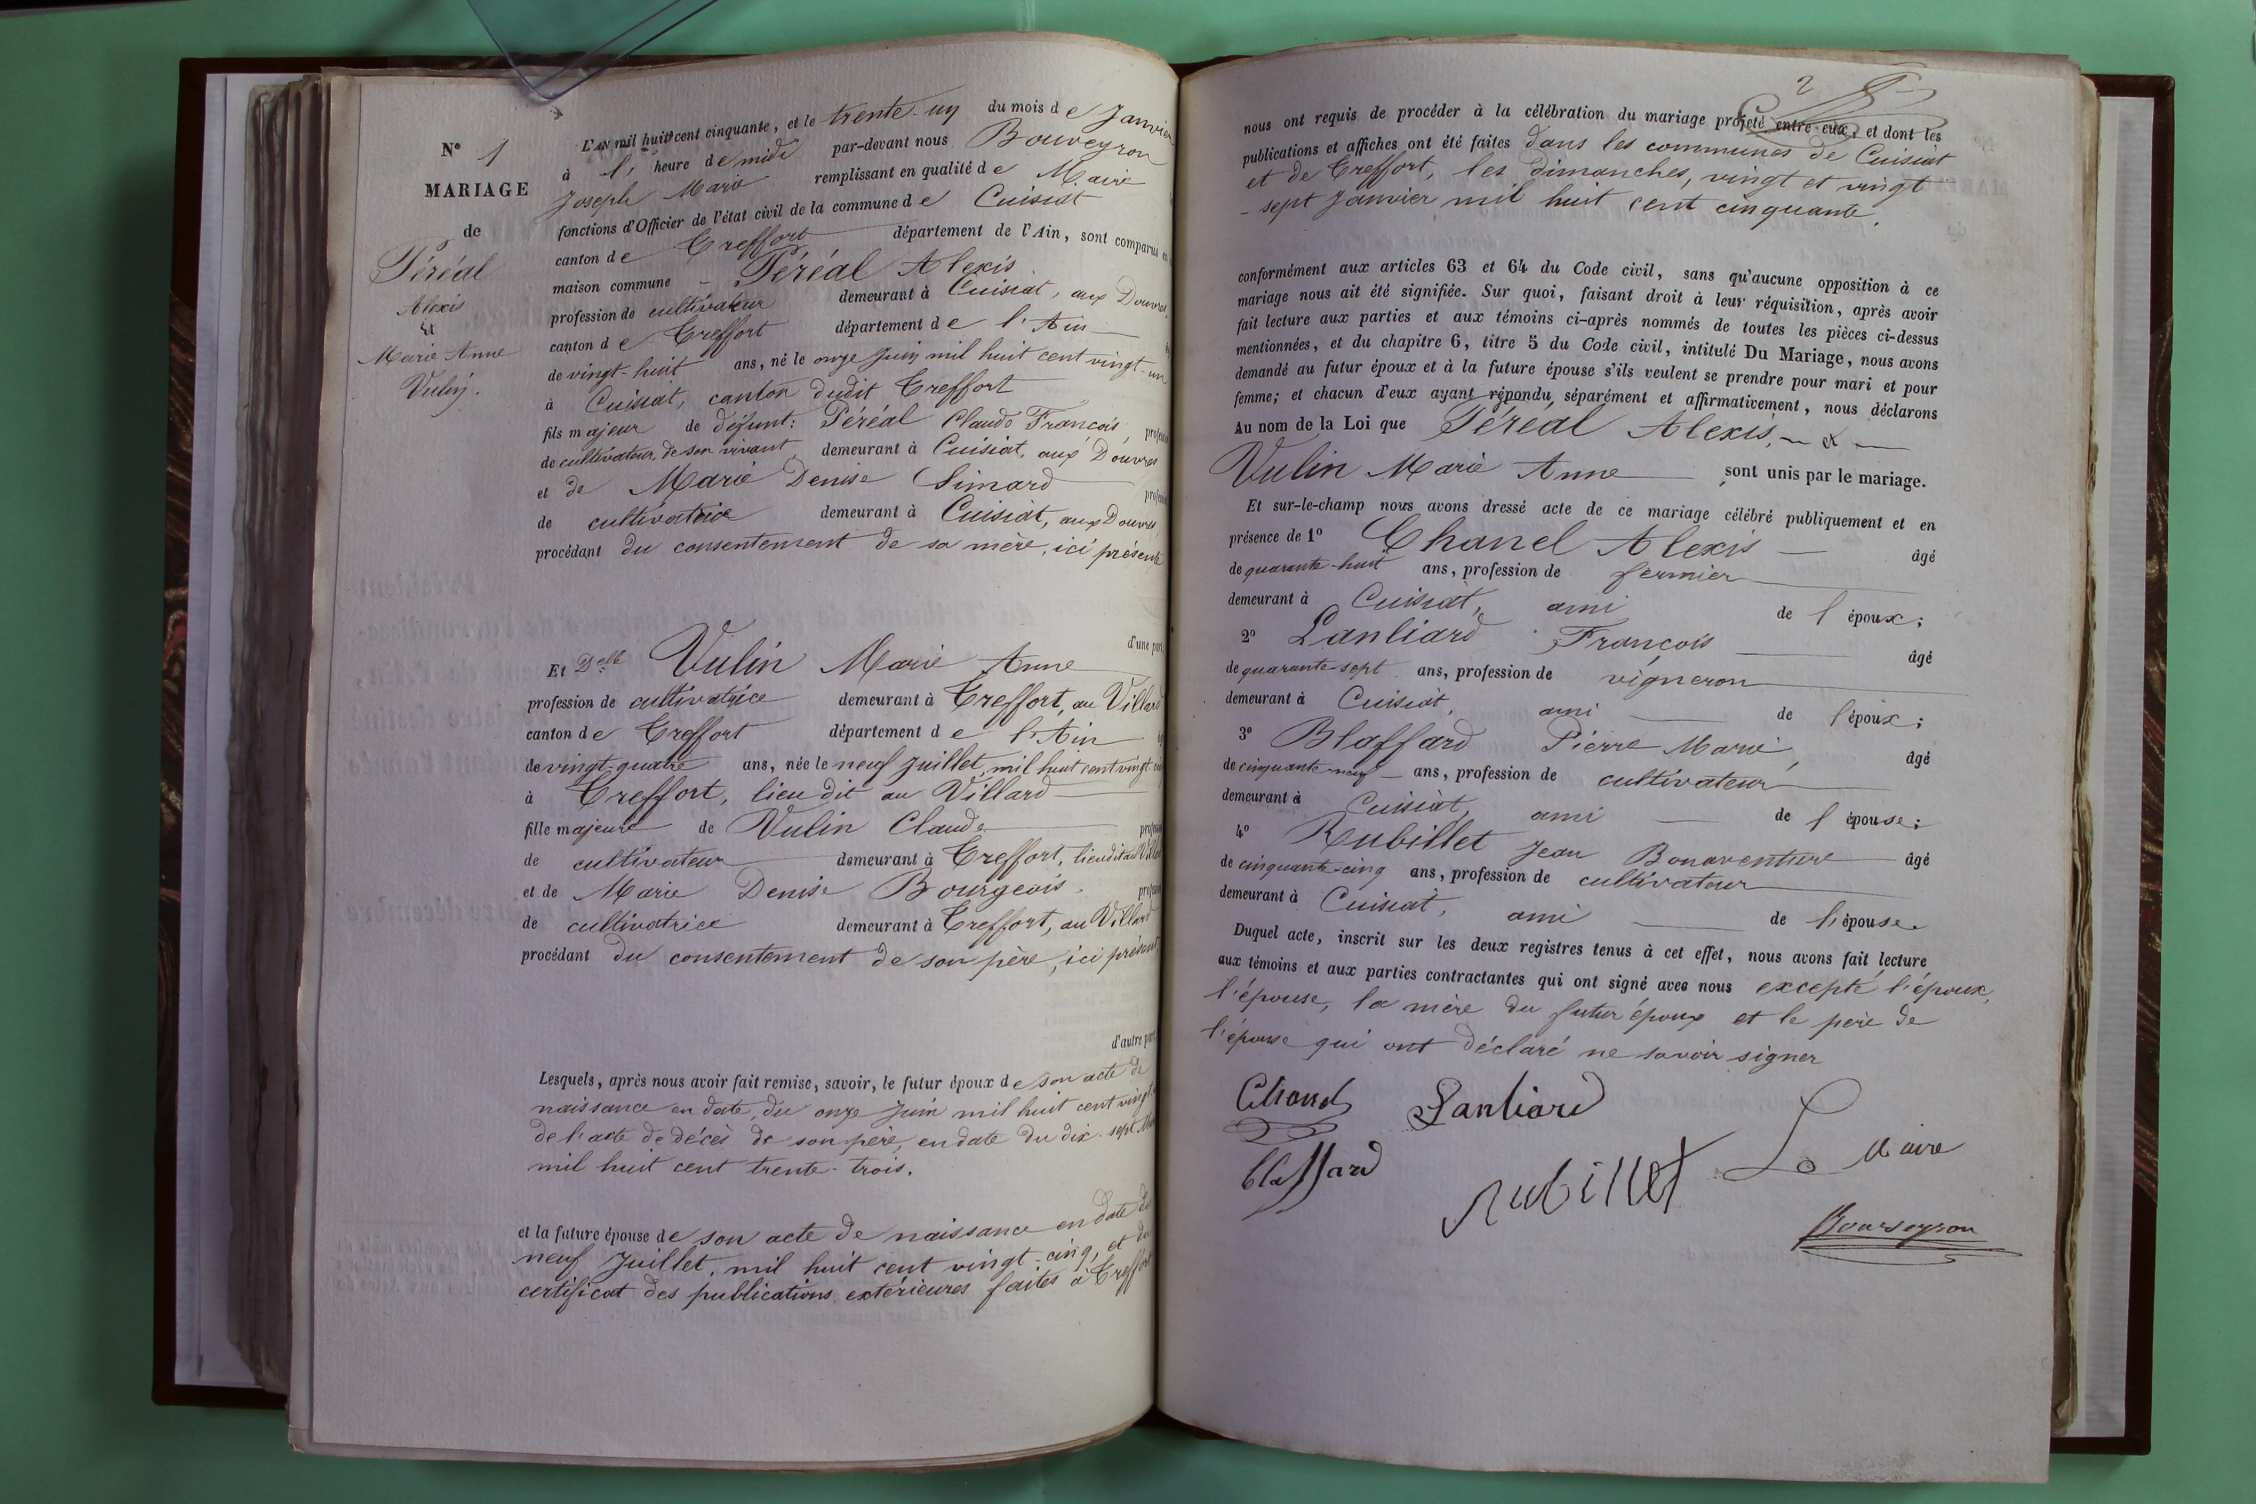 N° 1
MARIAGE
de
Péréal
Alexis
et
Marie Anne
Vulin.
L'AN mil huit cent cinquante, et le trente-un du mois de Janvier
à l' heure de midi par-devant nous Bouveyron
Joseph Marie remplissant en qualité de Maire
fonctions d'Officier de l'état civil de la commune de Cuisiat
canton de Treffort département de l'Ain, sont comparus en
maison commune - Péréal Alexis
profession de cultivateur demeurant à Cuisiat, aux Douvres,
canton de Treffort département de l'Ain
de vingt-huit ans, né le onze Juin mil huit cent vingt-un
à Cuisiat, canton dudit Treffort
fils majeur de défunt: Péréal Claude François, profession
de cultivateur, de son vivant, demeurant à Cuisiat, aux Douvres
et de Marie Denise Simard profession
de cultivatrice demeurant à Cuisiat, aux Douvres
procédant du consentement de sa mère, ici présente
d'une part,
Et Delle Vulin Marie Anne
profession de cultivatrice demeurant à Treffort, au Villard
canton de Treffort département de l'Ain
de vingt-quatre ans, née le neuf Juillet, mil huit cent vingt
à Treffort, lieu dit au Villard
fille majeure de Vulin Claude profession
de cultivateur demeurant à Treffort, lieu dit au Villard
et de Marie Denise Bourgeois. profession
de cultivatrice demeurant à Treffort, au Villard
procédant du consentement de son père, ici présent
d'autre part,
Lesquels, après nous avoir fait remise, savoir, le futur époux de son acte de
naissance en date, du onze Juin mil huit cent vingt
de l'acte de décès de son père, en date du dix-sept
mil huit cent trente-trois.
et la future épouse de son acte de naissance en date du
neuf Juillet, mil huit cent vingt-cinq, et du
certificat des publications extérieures faites à Treffort
2
nous ont requis de procéder à la célébration du mariage projeté entre eux, et dont les
publications et affiches ont été faites dans les communes de Cuisiat
et de Treffort, les dimanches, vingt et vingt
-sept Janvier mil huit cent cinquante.
conformément aux articles 63 et 64 du Code civil, sans qu'aucune opposition à ce
mariage nous ait été signifiée. Sur quoi, faisant droit à leur réquisition, après avoir
fait lecture aux parties et aux témoins ci-après nommés de toutes les pièces ci-dessus
mentionnées, et du chapitre 6, titre 5 du Code civil, intitulé Du Mariage, nous avons
demandé au futur époux et à la future épouse s'ils veulent se prendre pour mari et pour
femme; et chacun d'eux ayant répondu séparément et affirmativement, nous déclarons
Au nom de la Loi que Péréal Alexis, - et -
Vulin Marie Anne sont unis par le mariage.
Et sur-le-champ nous avons dressé acte de ce mariage célébré publiquement et en
présence de 1° Chanel Alexis - âgé
de quarante-huit ans, profession de fermier
demeurant à Cuisiat, ami de l'époux;
2° Lanliard François âgé
de quarante-sept ans, profession de vigneron
demeurant à Cuisiat, ami de l'époux;
3° Blaffard Pierre Marie, âgé
de cinquante-neuf - ans, profession de cultivateur
demeurant à Cuisiat, ami de l'épouse;
4° Rubillet Jean Bonaventure âgé
de cinquante-cinq ans, profession de cultivateur
demeurant à Cuisiat, ami de l'épouse.
Duquel acte, inscrit sur les deux registres tenus à cet effet, nous avons fait lecture
aux témoins et aux parties contractantes qui ont signé avec nous excepté l'époux,
l'épouse, la mère du futur époux et le père de
l'épouse qui ont déclaré ne savoir signer
Chanel Lanliard
Blaffard Rubillet Le Maire
Bouveyron